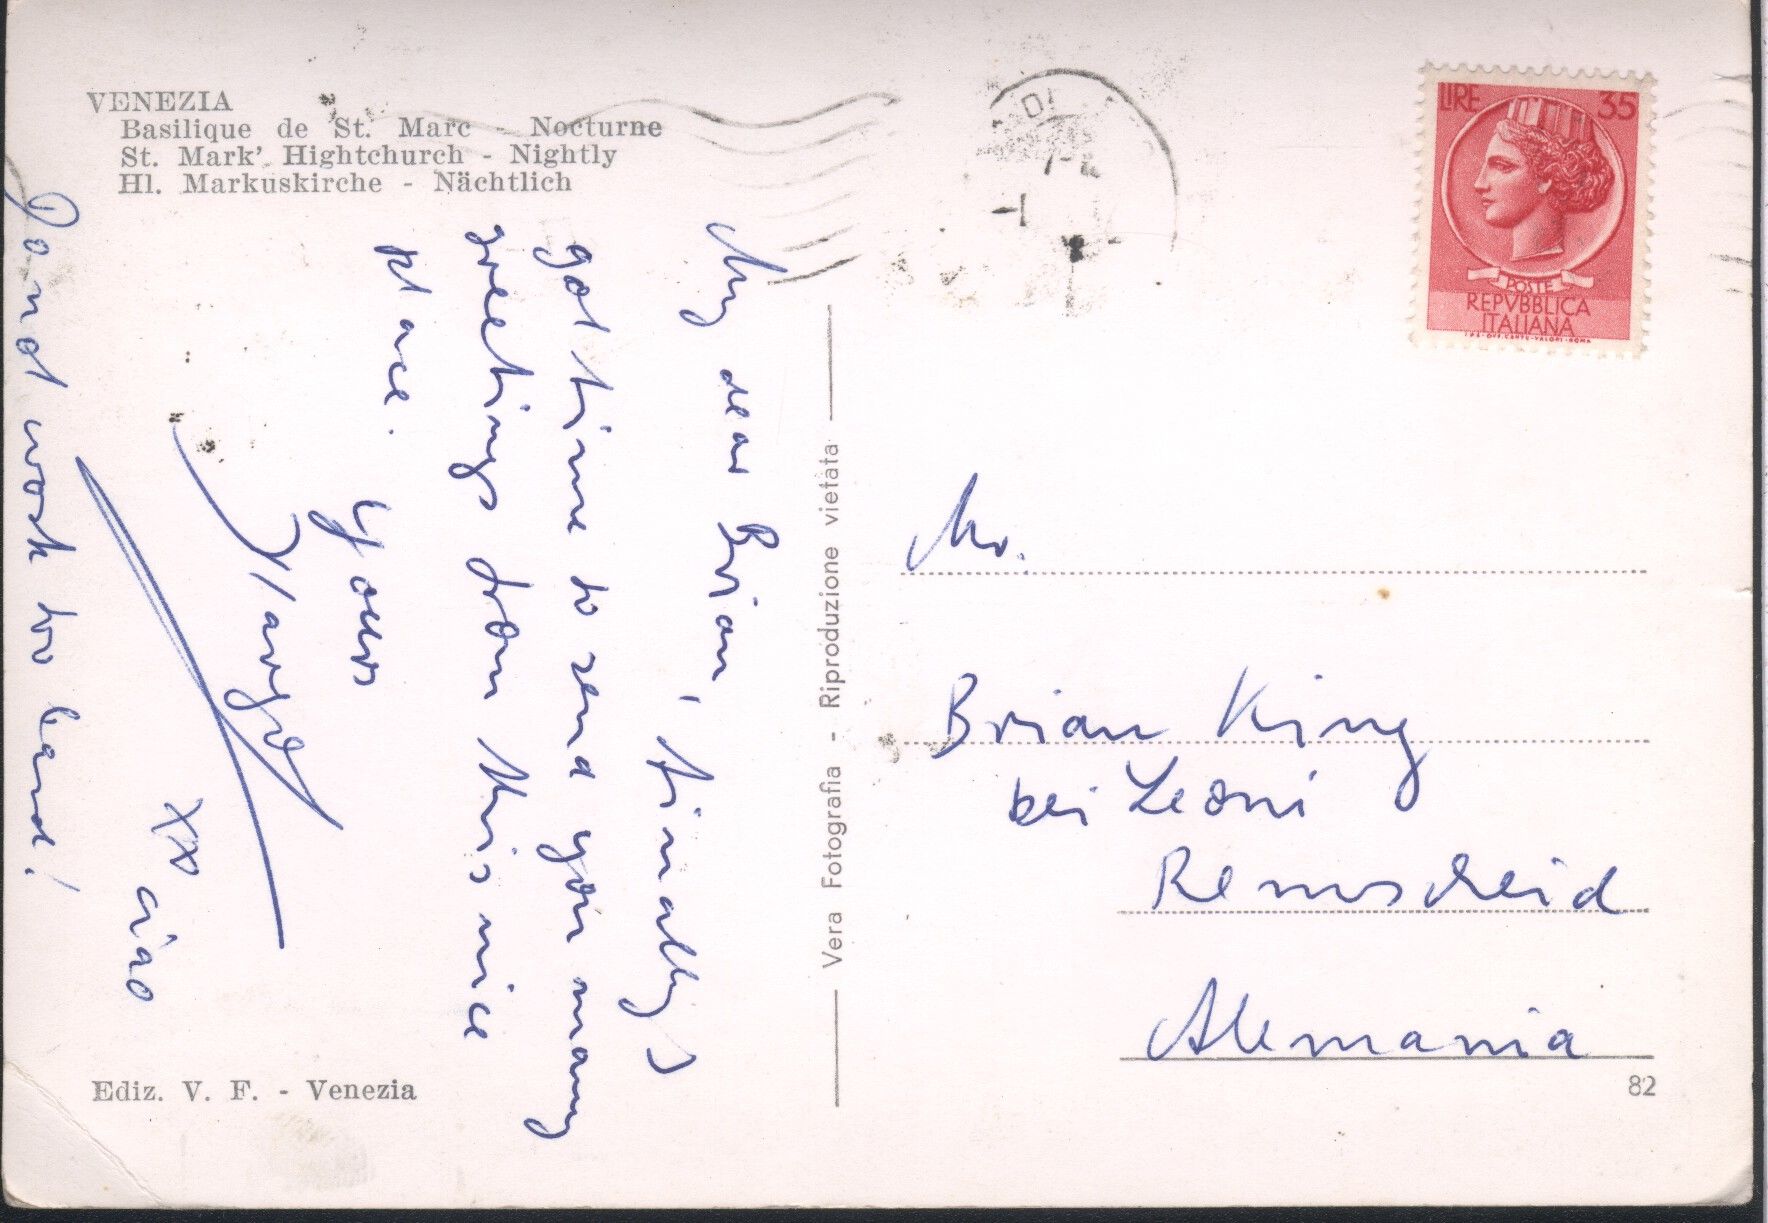 VENEZIA
Basilique de St. Marc - Nocturne
St. Mark' Hightchurch - Nightly
Hl. Markuskirche - Nächtlich
My dear Brian, finally I
got time to send you many
greetings from this nice
place.
Yours
Margo
xxx ciao
Do not work too hard!
Ediz. V. F. - Venezia
Vera Fotografia - Riproduzione vietata
LIRE 35
POSTE
REPVBBLICA
ITALIANA
I.P.S. OFF. CARTE-VALORI-ROMA
Mr.
Brian King
bei Leoni
Remscheid
Alemania
82